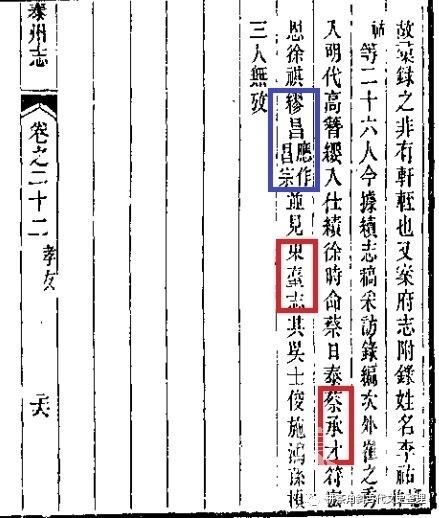 故彙錄之非有軒輊也又案府志附錄姓名李祐
等二十六人今據續志稿采訪錄編次外崔之秀
入明代高簪纓入仕績徐時命蔡日泰蔡承才符
恩徐祺繆昌應作昌宗並見東臺志其吳士俊施鴻孫楨
三人無攷
泰州志
卷之二十二
孝友